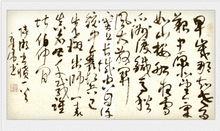 早歲那知世事
艱中原北望氣
如山樓船夜雪
瓜洲渡鐵馬秋
風大散關塞
上長城空自許
鏡中衰鬢已先
斑出師一表
真名世千載誰
堪伯仲間